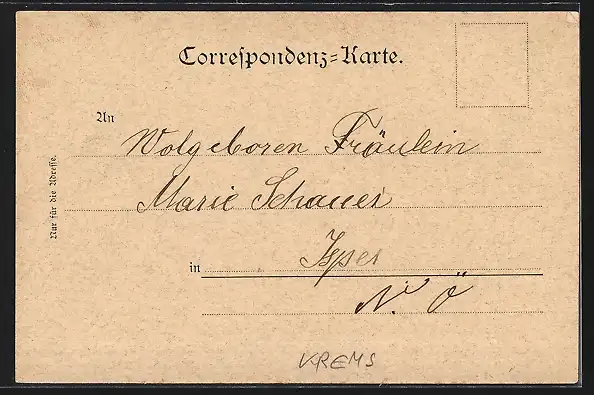 Correspondenz-Karte.
An
Wolgeboren Fräulein
Marie Schauer
in Isper
N. Ö
Nur für die Adresse.
KREMS